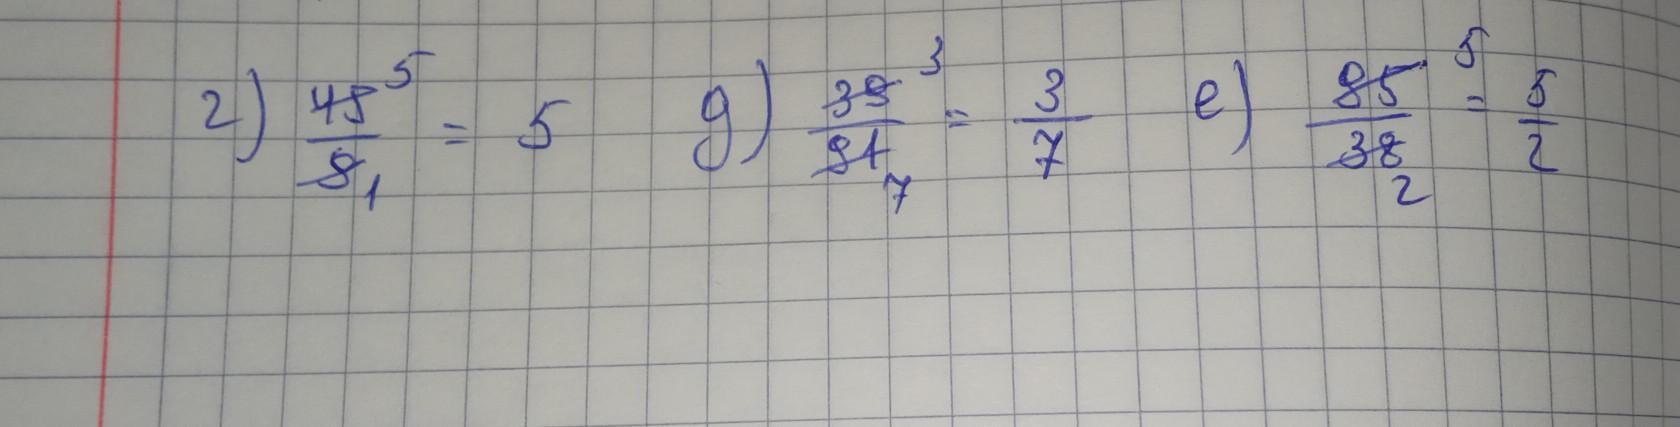 г) 45⁵/9₁ = 5 д) 39³/91₇ = 3/7 е) 95⁵/38₂ = 5/2